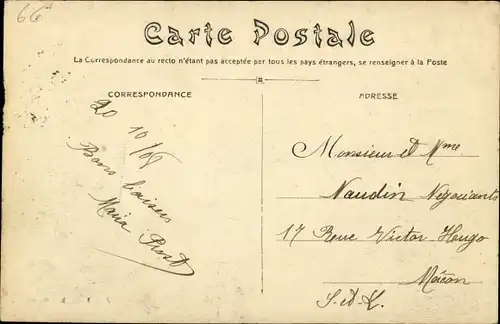 66
Carte Postale
La Correspondance au recto n'étant pas acceptée par tous les pays étrangers, se renseigner à la Poste
CORRESPONDANCE
20 10/09
Bons baisers
Maria
ADRESSE
Monsieur et Mme
Naudin Négociants
17 Rue Victor Hugo
Mâcon
S-et-L.